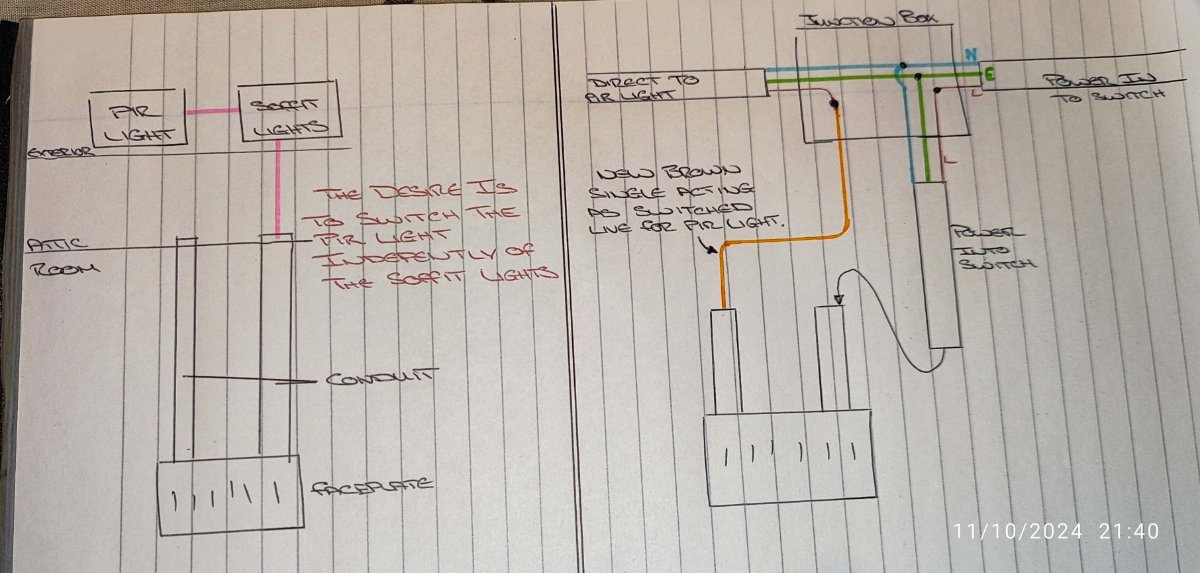 PIR
LIGHT
SOFFIT
LIGHTS
EXTERIOR
ATTIC
ROOM
THE DESIRE IS
TO SWITCH THE
PIR LIGHT
INDEPENTLY OF
THE SOFFIT LIGHTS
CONDUIT
FACEPLATE
JUNCTION BOX
DIRECT TO
PIR LIGHT
N
E
L
POWER IN
TO SWITCH
L
NEW BROWN
SINGLE ACTING
AS SWITCHED
LIVE FOR PIR LIGHT.
POWER
INTO
SWITCH
11/10/2024 21:40